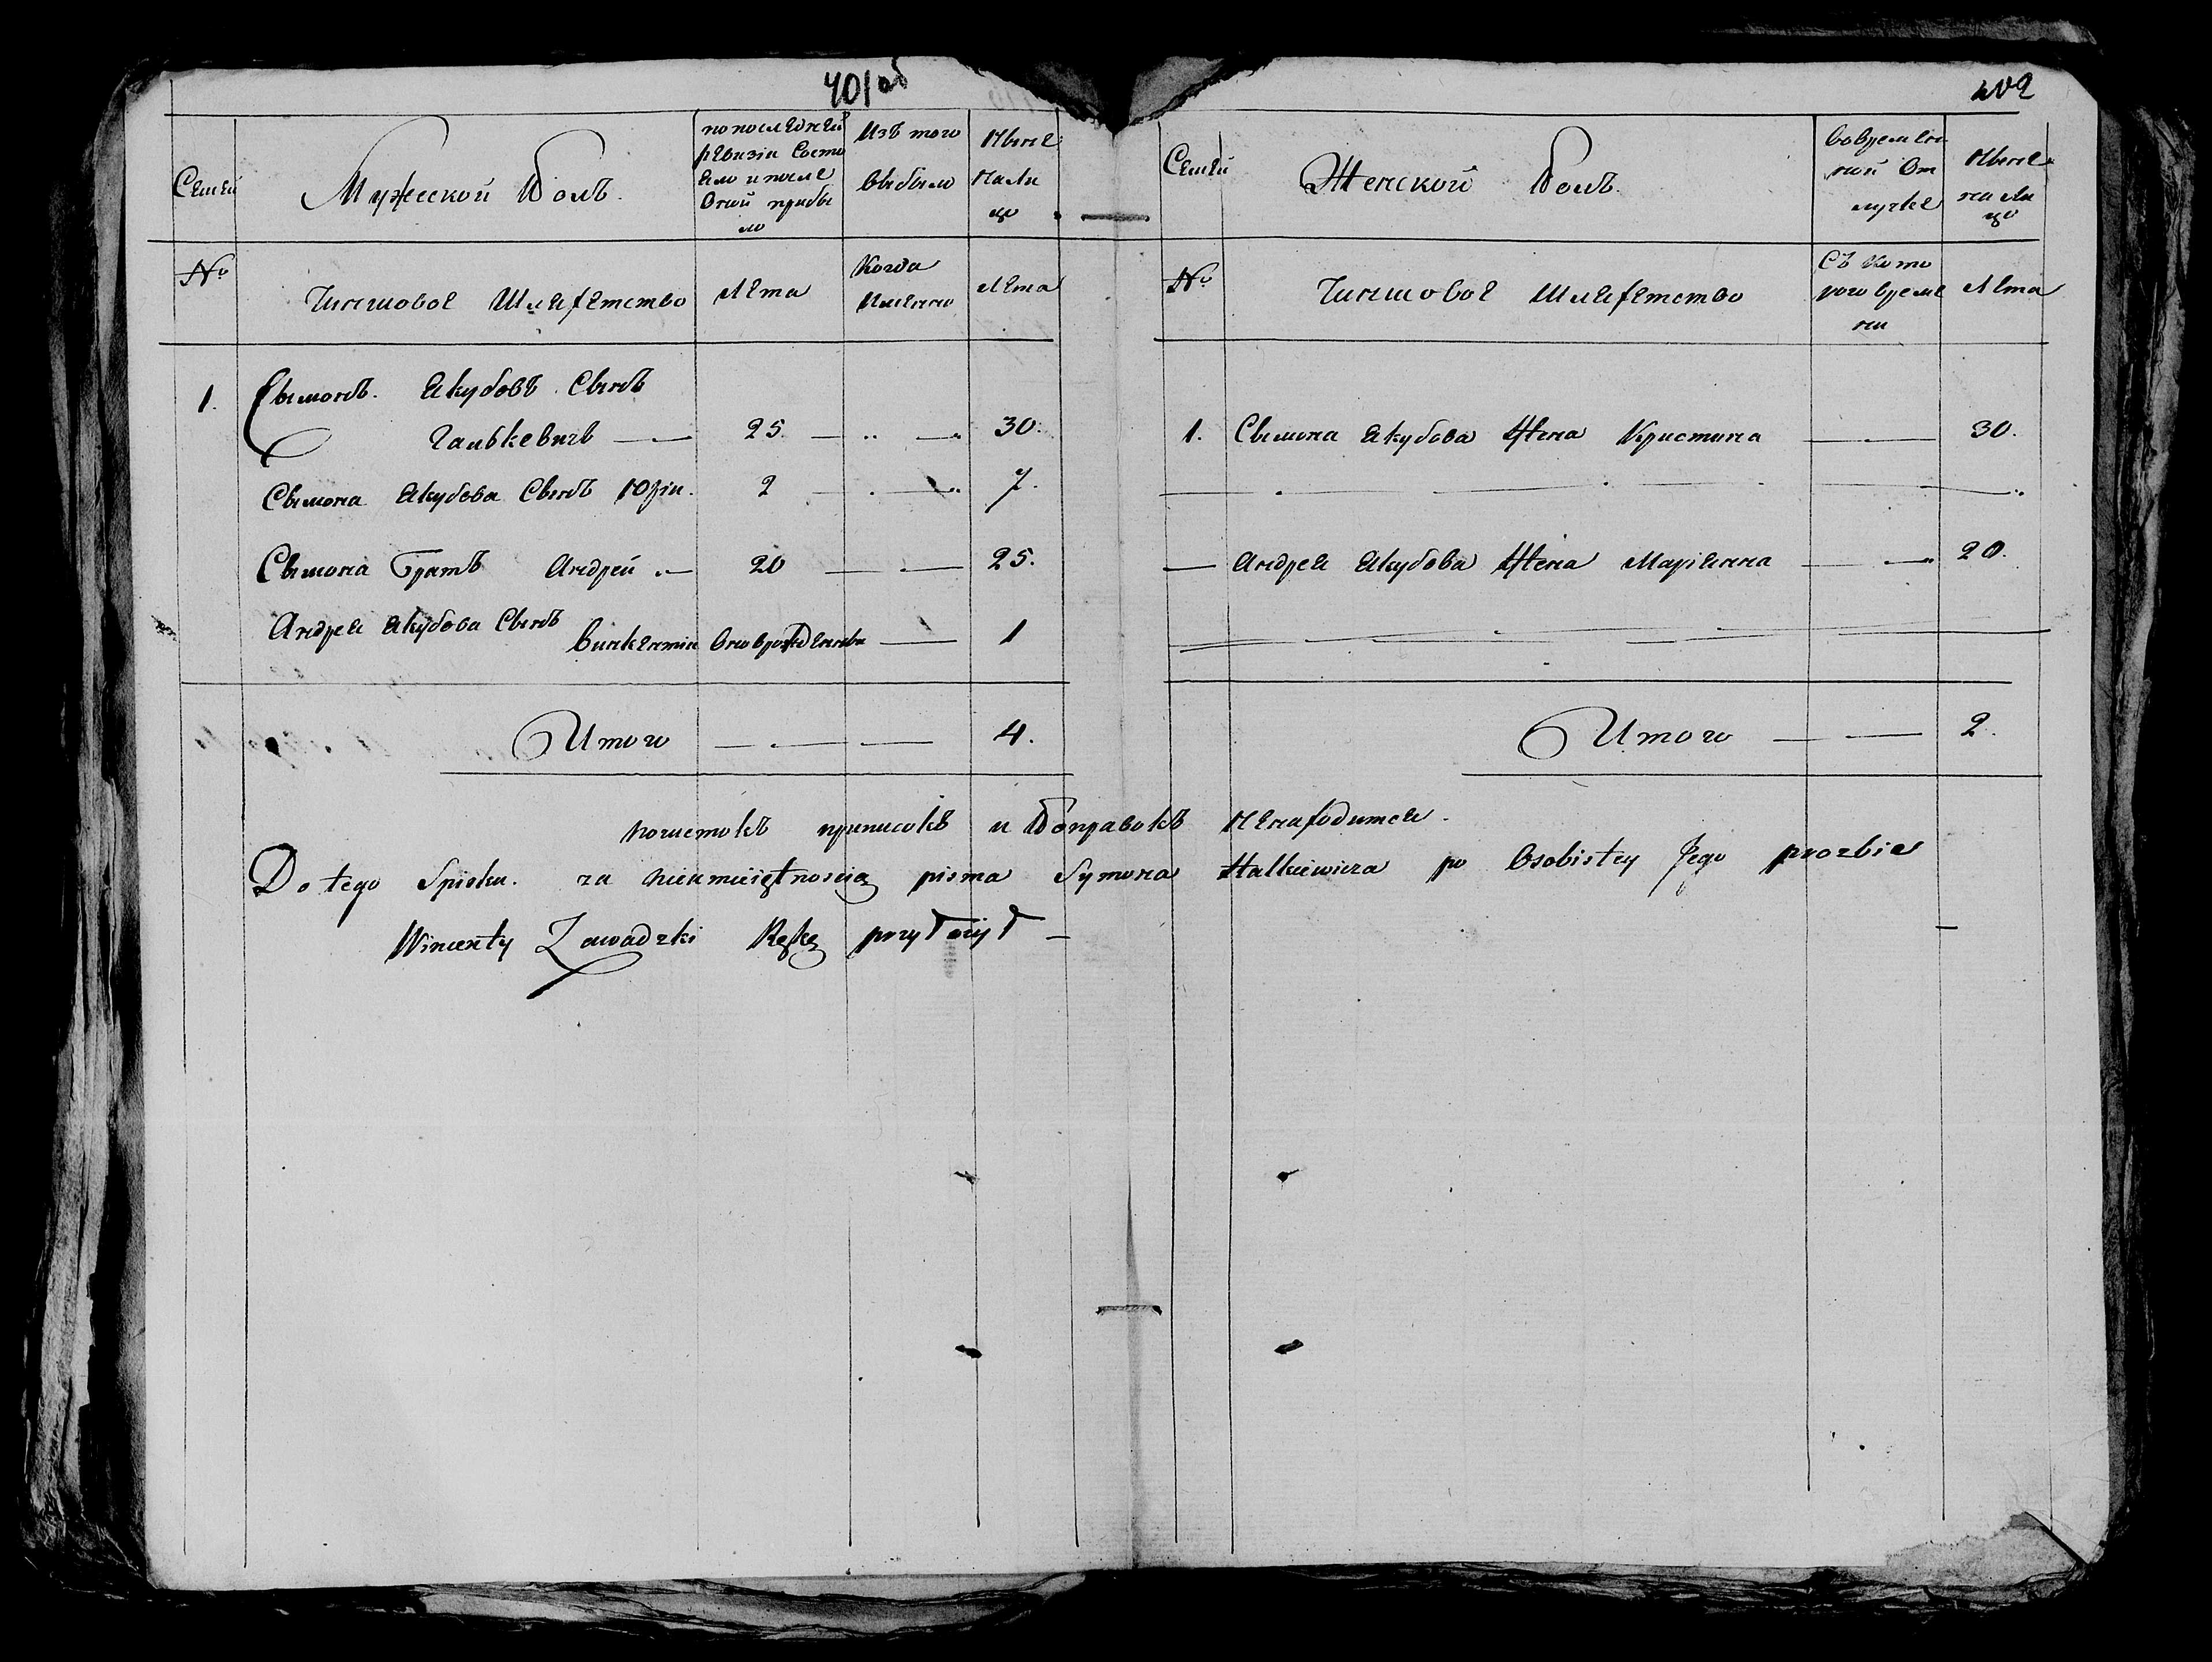 401об
402
Семьи
Мужеской Полъ.
по последней
ревизіи Состо
яло и после
Оной прибы
ло
Изъ того
выбыло
Ныне
на Ли
цо
№
Чиншовое Шляхетство
Лета
Когда
Именно
Лета
1. Сымонъ Якубовъ Сынъ
Галькевичъ 25 30.
Сымона Якубова Сынъ Юрiи. 2 7.
Сымона Братъ Андрей 20 25.
Андрея Якубова Сынъ
Винкентiи Новорожденны 1
Итого 4.
Семьи
Женской Полъ.
Вовремен
ной От
лучке
Ныне
на Ли
цо
№
Чиншовое Шляхетство
Съ кото
рого време
ни
Лета
1. Сымона Якубова Жена Кристина 30.
Андрея Якубова Жена Марiянна 20.
Итого 2.
почистокъ приписокъ и Поправокъ ненаходится.
Do tego Spisku. za nieumieiętnością pisma Symona Halkiewicza po Osobistey Jego prozbie
Wincenty Zawadzki Rękę przyłożył